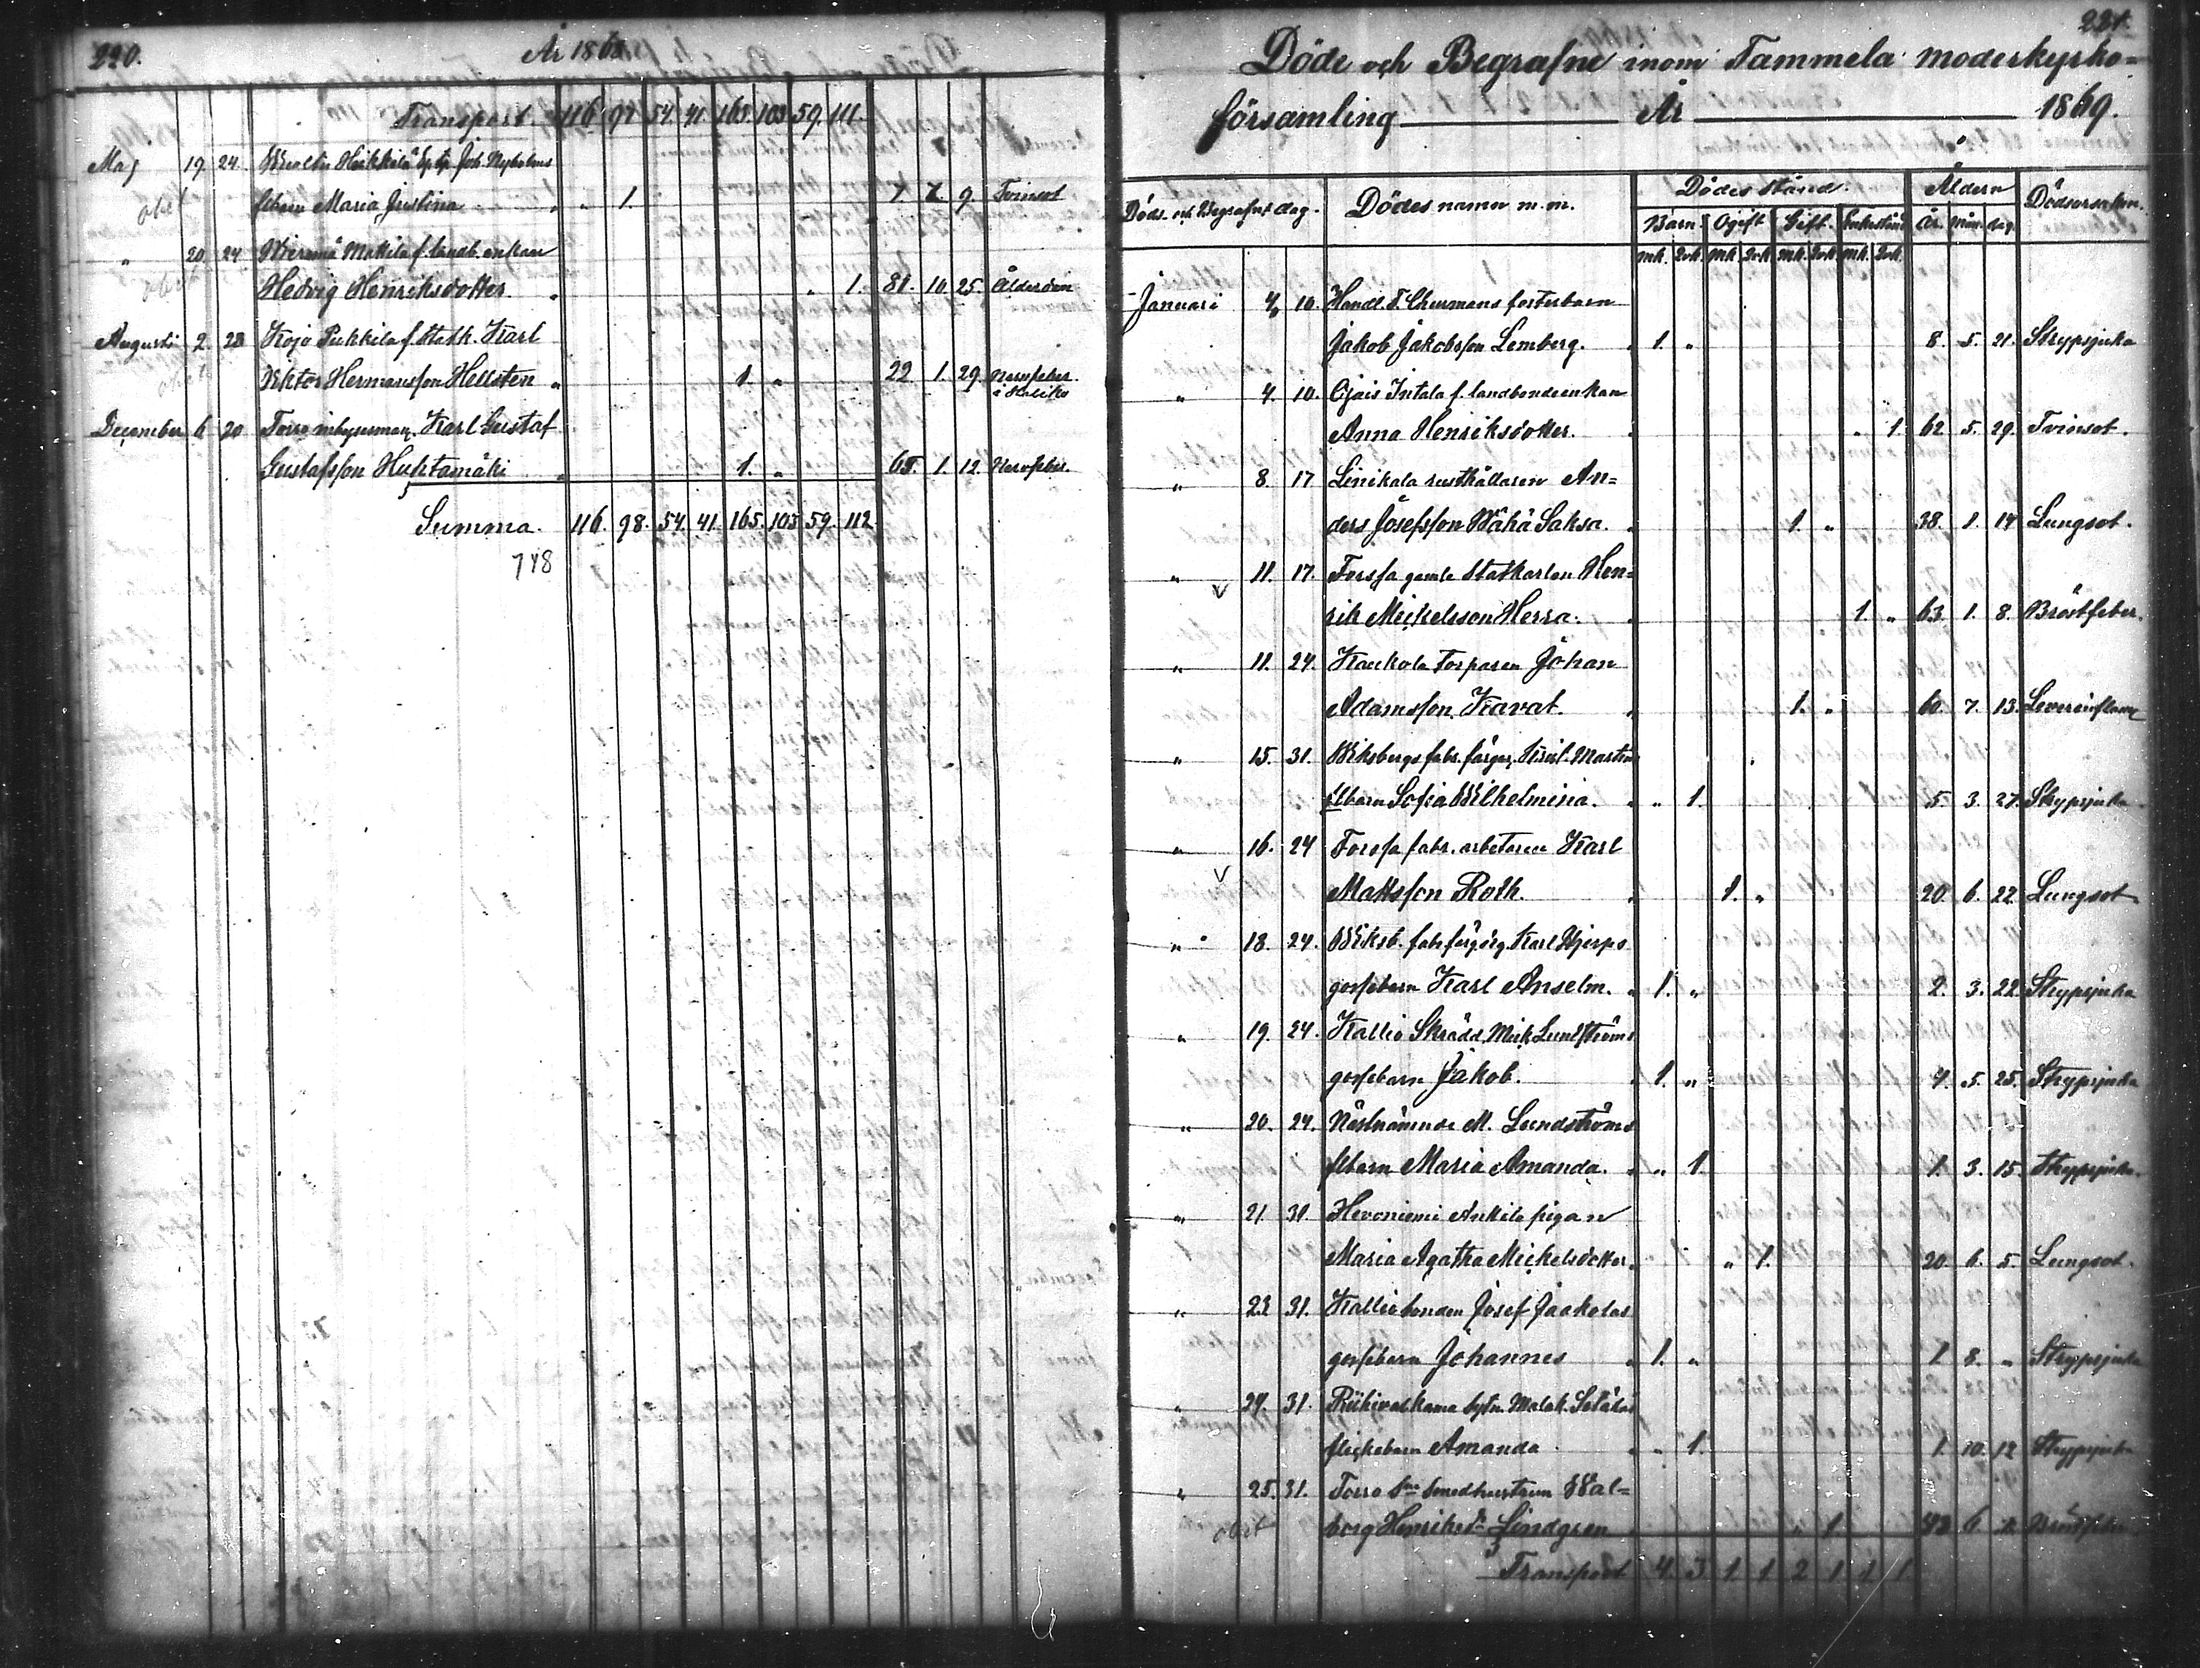 220.
År 1868
Transport. 116. 97. 54. 41. 165. 103. 59. 111.
Maj 19. 24. Heikkilä Joh. Nyholms
flbarn Maria Justina „ 1. 7 7. 9. Tvinsot
„ 20. 24 Mattila f. landb. enkan
Hedvig Henriksdotter. „ 1. 81. 10. 25. Ålderdom
Augusti 2. 23 Kojo Pukkila f. Karl
Viktor Hermansson Hellsten „ 1. „ 22 1. 29. Nervfeber
i Haliko
December 6 20 Torro inhysesman, Karl Gustaf
Gustafsson Huhtamäki 1. „ 65. 1. 12. Nervfeber.
Summa. 116. 98. 54. 41. 165. 103. 59. 112
748
221.
Döde och Begrafne inom Tammela moderkyrko=
församling År 1869.
Döds- och Begrafns dag. Dödes namn m. m. Dödes stånd. Åldern Dödsorsaken.
Barn. Ogift Gift. Enkestånd År. Mån. dag.
mk. Qvk. mk. Qvk. mk. Qvk. mk. Qvk.
Januari 4. 10. Handl. F. fosterbarn
Jakob Jakobsson Lemberg. 1. „ 8. 5. 21. Strypsjuka
„ 4. 10. Ojais Intala f. landbondeenkan
Anna Henriksdotter. „ 1. 62 5. 29. Tvinsot.
„ 8. 17 Linikala rusthållaren An=
ders Josefsson Wähä Saksa. 1. „ 38. 1. 14 Lungsot.
„ 11. 17. Forssa gamle Statkarlen Hen=
v
rik Mickelsson Herra. 1. „ 63. 1. 8. Bröstfeber.
„ 11. 24. Kaukola Torparen Johan
Adamsson Kavat. 1. „ 60. 7. 13. Leverinflam
„ 15. 31. Wiksbergs fabr. färgar. Martins
flbarn Sofia Wilhelmina. „ 1. 5. 3. 27. Strypsjuka
„ 16. 24 Forssa fabr. arbetaren Karl
v
Mattsson Roth. 1. „ 20. 6. 22 Lungsot
„ 18. 24. Wiksb. Karl Hjerps
gossebarn Karl Anselm. 1. „ 2. 3. 22. Strypsjuka
„ 19. 24. Kallio Skrädd. Mick. Lundströms
gossebarn Jakob. 1. „ 4. 5. 25. Strypsjuka
„ 20. 24. Nästnämnde M. Lundströms
flbarn Maria Amanda. „ 1. 1. 3. 15. Strypsjuka.
„ 21. 31. Hevoniemi Anttila pigan
Maria Agatha Mickelsdotter. „ 1. 20. 6. 5. Lungsot.
„ 23. 31. Kallio bonden Josef Jaakolas
gossebarn Johannes 1. „ 1. 8. „ Strypsjuka
„ 24. 31. Riihivalkama Malak. Setäläs
flickebarn Amanda „ 1. 1. 10. 12 Strypsjuka
„ 25. 31. Torro Smedhustrun Wal=
borg Henriksdr Lindgren „ 1. 6.
Transport 4. 3 1. 1. 2 1. 1. 1.